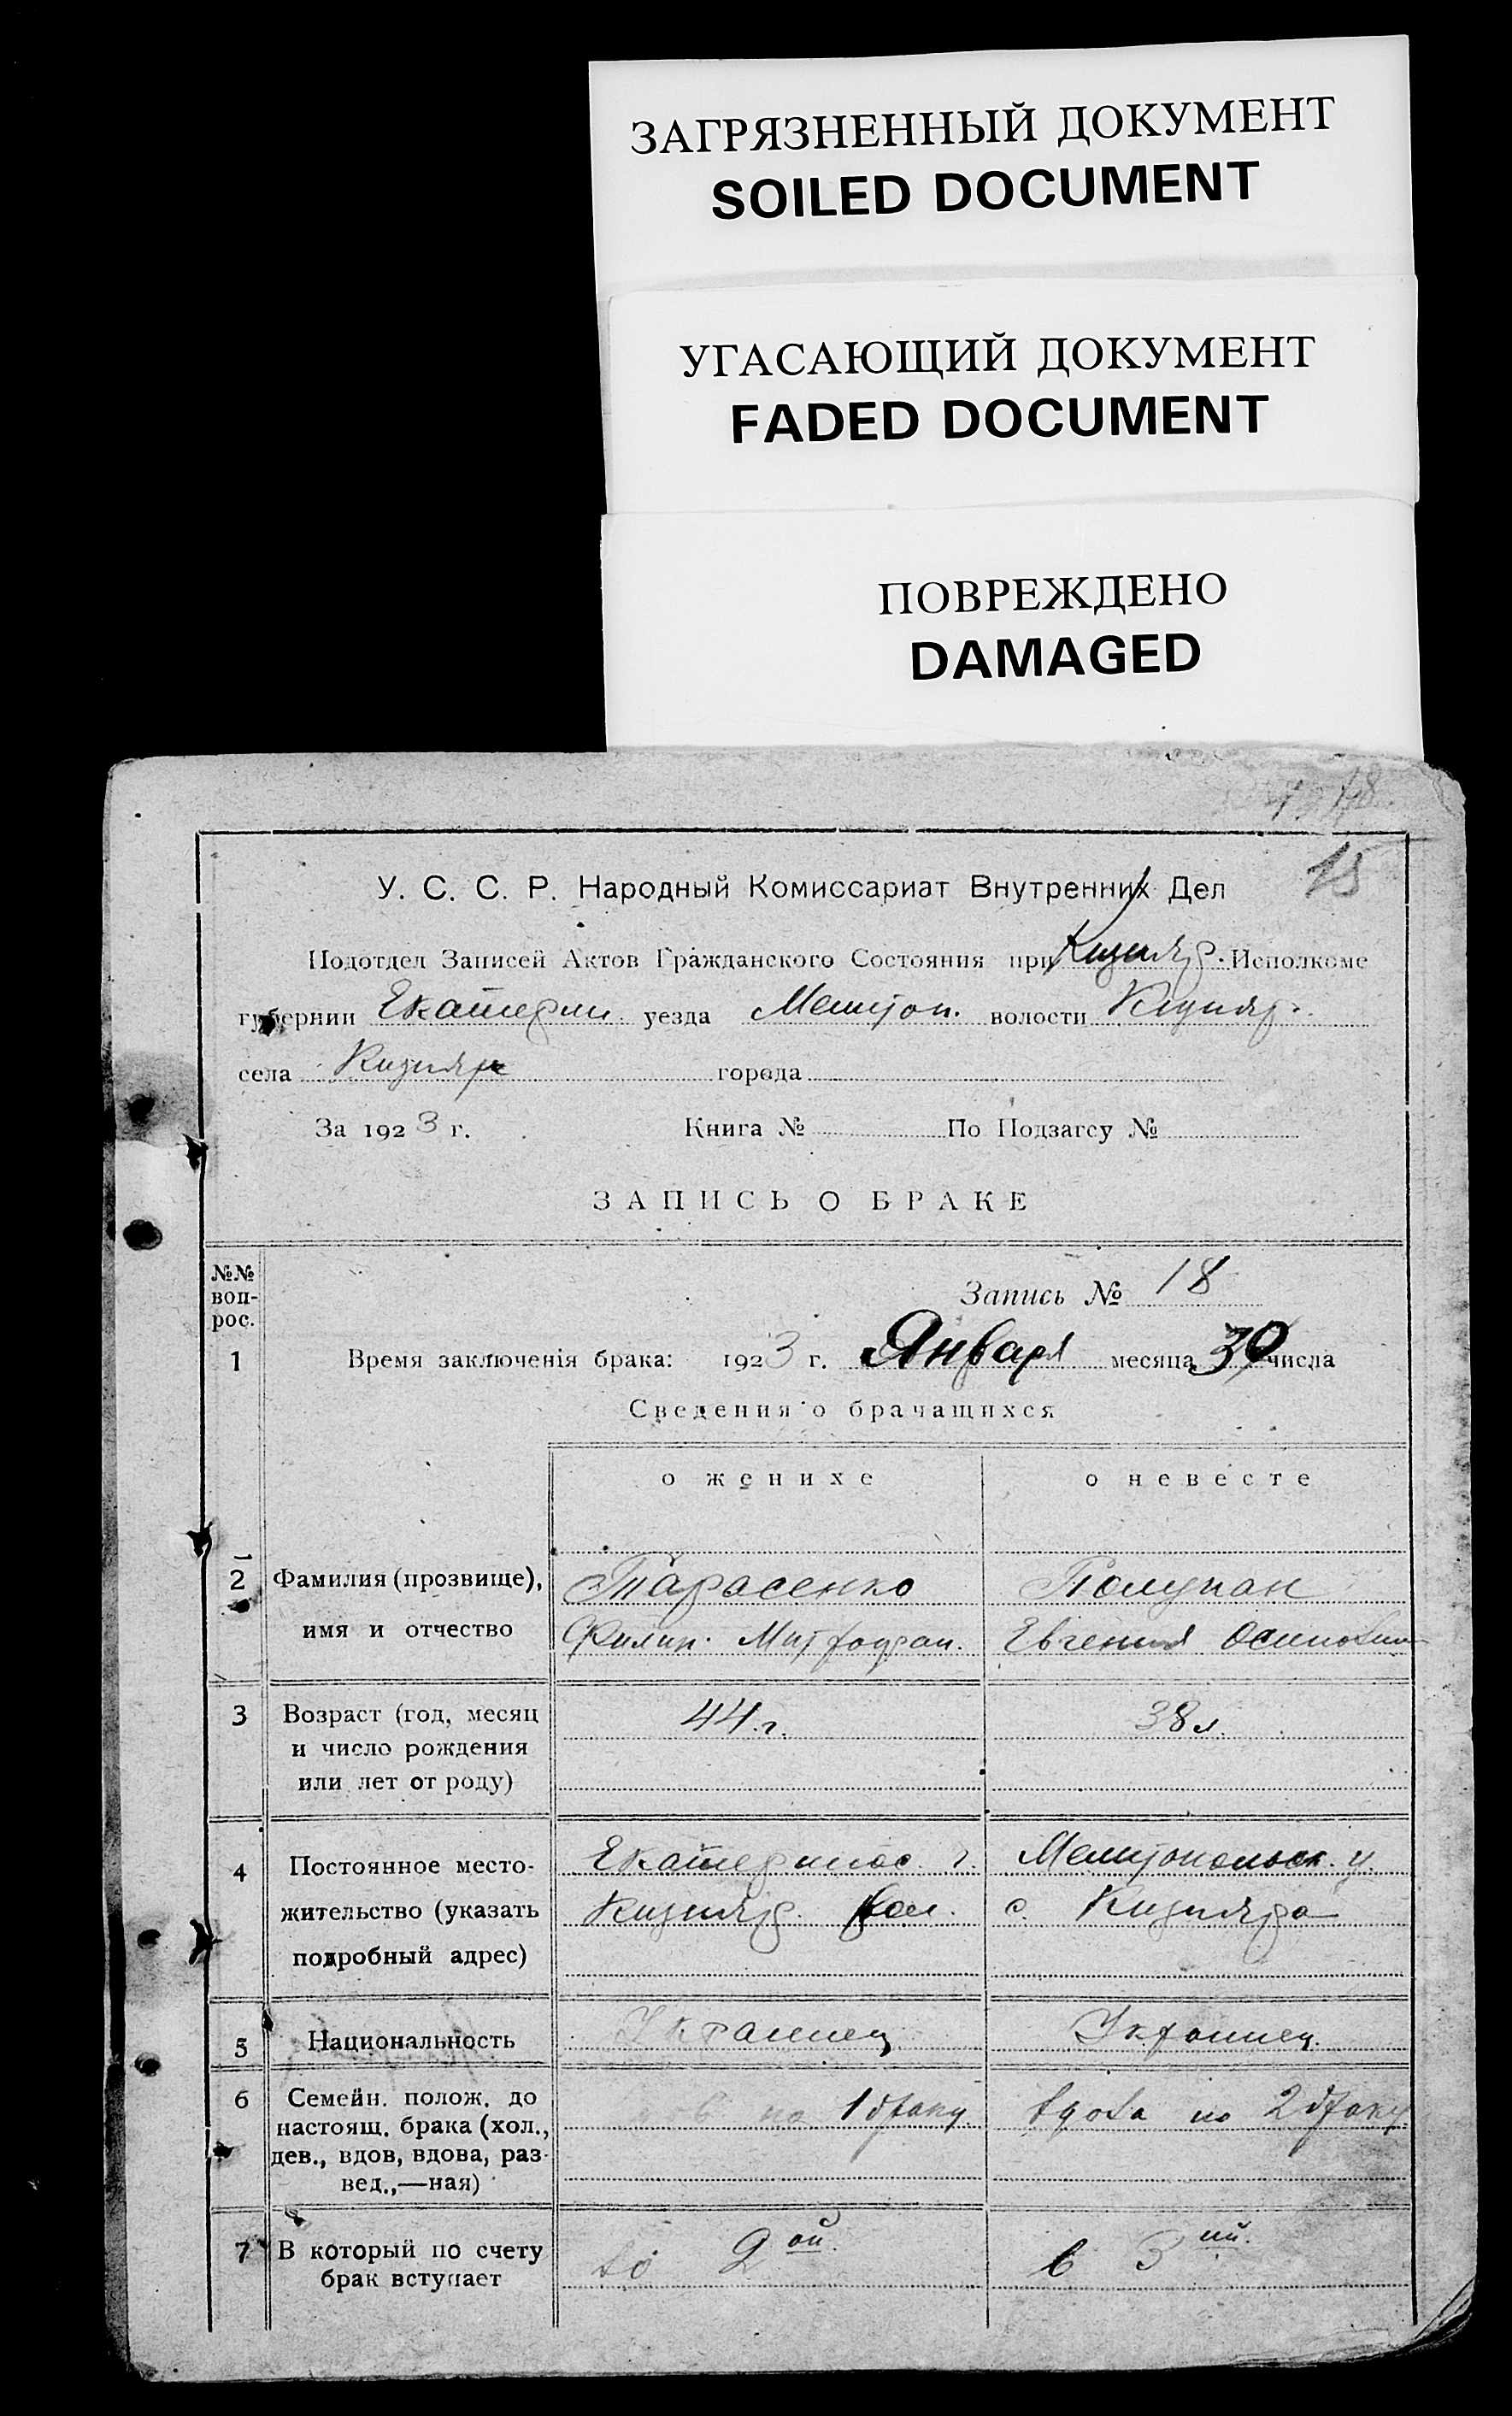 ЗАГРЯЗНЕННЫЙ ДОКУМЕНТ
SOILED DOCUMENT
УГАСАЮЩИЙ ДОКУМЕНТ
FADED DOCUMENT
ПОВРЕЖДЕНО
DAMAGED
15
У. С. С. Р. Народный Комиссариат Внутренних Дел
Подотдел Записей Актов Гражданского Состояния при Кизияр. Исполкоме
губернии Екатерин. уезда Мелитоп. волости Кизияр.
села Кизияр города
За 1923 г. Книга № По Подзагсу №
ЗАПИСЬ О БРАКЕ
№№ воп-рос.
Запись № 18
1 Время заключенія брака: 1923 г. Января месяца 30 числа
Сведения о брачащихся
о женихе о невесте
2 Фамилия (прозвище), Тарасенко Полупан
имя и отчество Филип. Митрофан. Евгения Осиповна
3 Возраст (год, месяц 44 г. 38 л.
и число рождения
или лет от роду)
4 Постоянное место- Екатеринос. г. Мелитопольск. у.
жительство (указать Кизияр. вол. с. Кизияра
подробный адрес)
5 Национальность Украинец Украинец.
6 Семейн. полож. до по 1 браку. вдова по 2 браку
настоящ. брака (хол.,
дев., вдов, вдова, раз-
вед.,—ная)
7 В который по счету во 2ой. в 3ий.
брак вступает